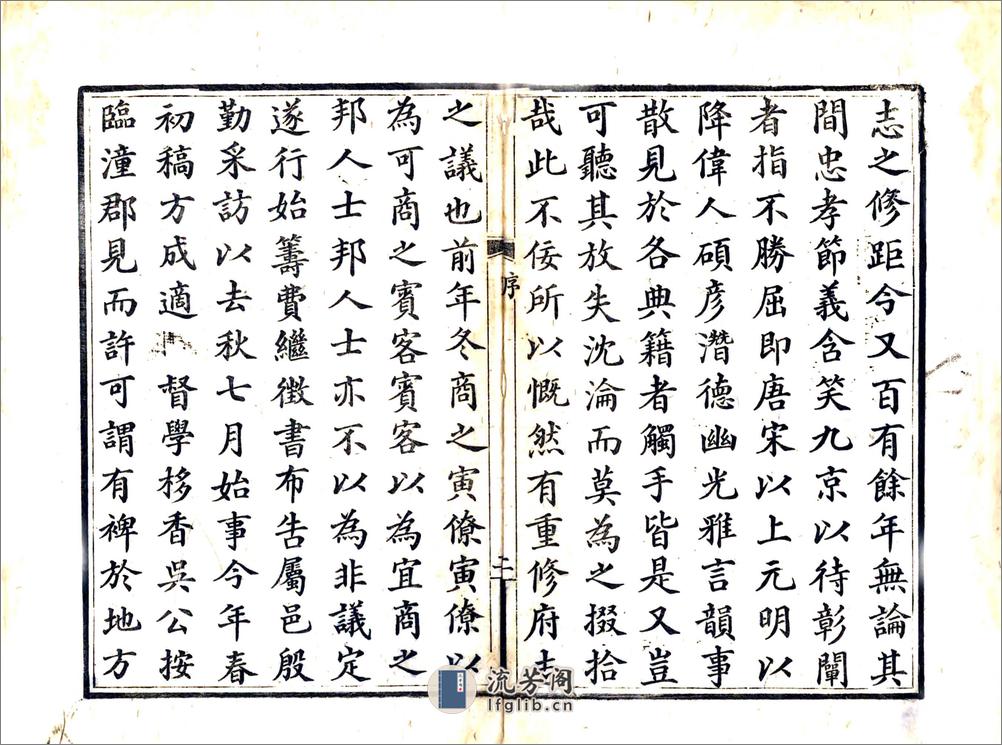 志之修距今又百有餘年無論其
間忠孝節義含笑九京以待彰闡
者指不勝屈即唐宋以上元明以
降偉人碩彦潛德幽光雅言韻事
散見於各典籍者觸手皆是又豈
可聽其放失沈淪而莫為之掇拾
哉此不佞所以慨然有重修府志
序
二
之議也前年冬商之寅僚寅僚以
為可商之賓客賓客以為宜商之
邦人士邦人士亦不以為非議定
遂行始籌費繼徴書布告屬邑殷
勤采訪以去秋七月始事今年春
初稿方成適督學移香吳公按
臨潼郡見而許可謂有裨於地方
流芳阁
lfglib.cn